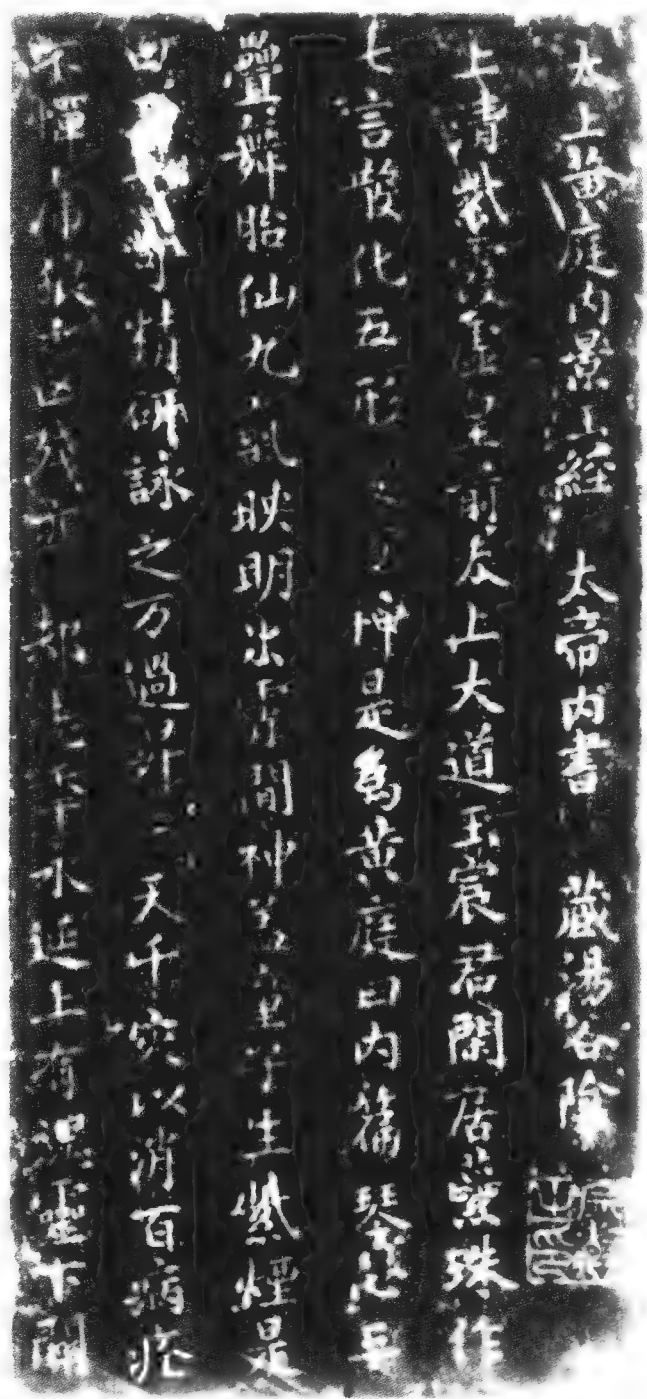 太上黃庭內景玉經 太帝內書 藏湯谷陰
上清紫霞虛皇前太上大道玉宸君閑居蘂珠作
七言散化五形變萬神是爲黃庭曰內篇琴心三
疊舞胎仙九氣映明出霄間神蓋童子生紫煙是
曰玉書可精研詠之万過昇三天千灾以消百病痊
不憚虎狼之凶殘亦以却老年永延上有魂靈下關